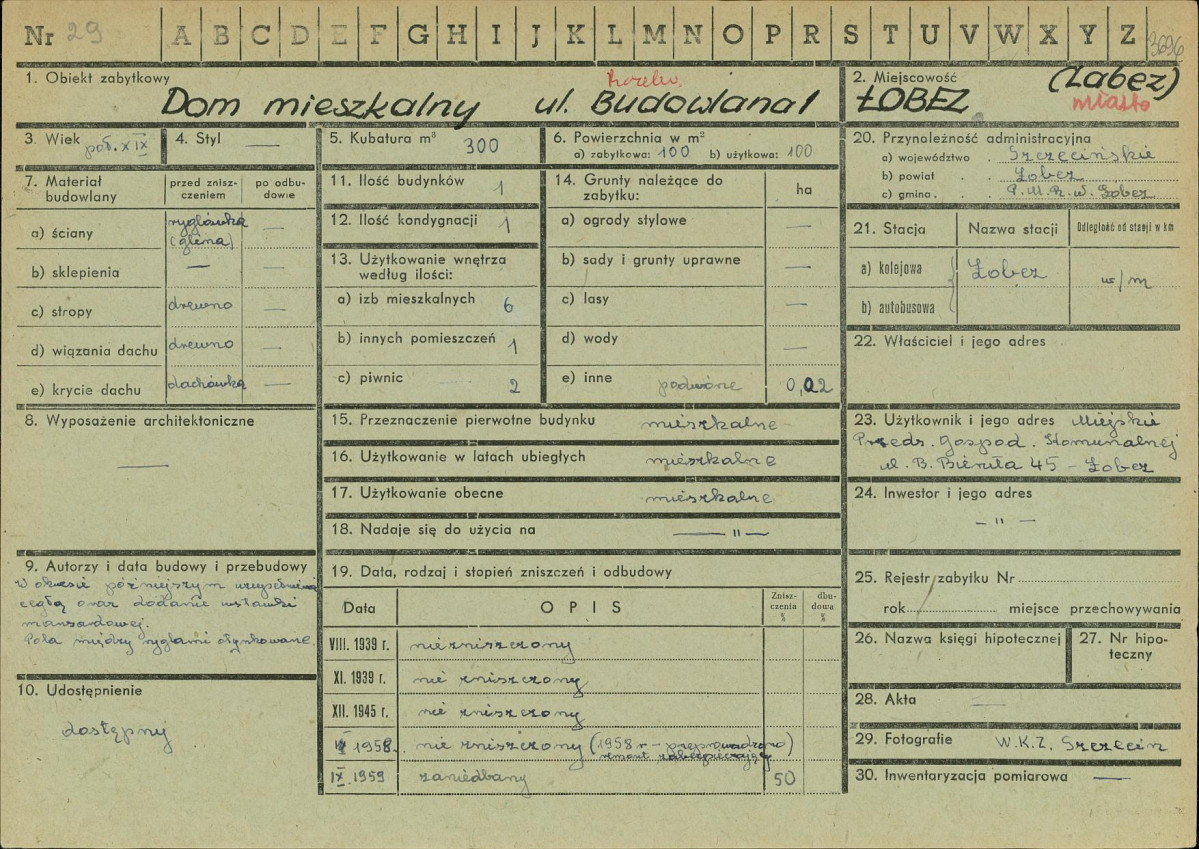 Nr 29 A B C D E F G H I J K L M N O P R S T U V W X Y Z 3696
1. Obiekt zabytkowy
Dom mieszkalny ul. Budowlana 1
2. Miejscowość (Łabez)
ŁOBEZ miasto
3. Wiek poł. XIX
4. Styl —
5. Kubatura m³ 300
6. Powierzchnia w m²
a) zabytkowa: 100 b) użytkowa: 100
7. Materiał budowlany
przed zniszczeniem
po odbudowie
a) ściany ryglówka (glina) —
b) sklepienia — —
c) stropy drewno —
d) wiązania dachu drewno —
e) krycie dachu dachówka —
8. Wyposażenie architektoniczne
—
9. Autorzy i data budowy i przebudowy
W okresie późniejszym
cegłą oraz dodanie wstawki
mansardowej.
Pola między ryglami otynkowane.
10. Udostępnienie
dostępny
11. Ilość budynków 1
12. Ilość kondygnacji 1
13. Użytkowanie wnętrza
według ilości:
a) izb mieszkalnych 6
b) innych pomieszczeń 1
c) piwnic 2
14. Grunty należące do
zabytku: ha
a) ogrody stylowe —
b) sady i grunty uprawne —
c) lasy —
d) wody —
e) inne podwórze 0,02
15. Przeznaczenie pierwotne budynku mieszkalne
16. Użytkowanie w latach ubiegłych mieszkalne
17. Użytkowanie obecne mieszkalne
18. Nadaje się do użycia na — " —
19. Data, rodzaj i stopień zniszczeń i odbudowy
Data OPIS Zniszczenia % dbudowa %
VIII. 1939 r. niezniszczony
XI. 1939 r. nie zniszczony
XII. 1945 r. nie zniszczony
1958. nie zniszczony (1958 r – przeprowadzono
remont zabezpieczający)
IX. 1959 zaniedbany 50
20. Przynależność administracyjna
a) województwo . Szczecińskie
b) powiat . . Łobez
c) gmina . . . P.M.R.w. Łobez
21. Stacja Nazwa stacji Odległość od stacji w km
a) kolejowa Łobez w/m
b) autobusowa
22. Właściciel i jego adres
23. Użytkownik i jego adres Miejskie
Przeds. Gospod. Komunalnej
ul. B. Bieruta 45 – Łobez
24. Inwestor i jego adres
– " –
25. Rejestr zabytku Nr
rok miejsce przechowywania
26. Nazwa księgi hipotecznej
27. Nr hipoteczny
28. Akta —
29. Fotografie W.K.Z. Szczecin
30. Inwentaryzacja pomiarowa —